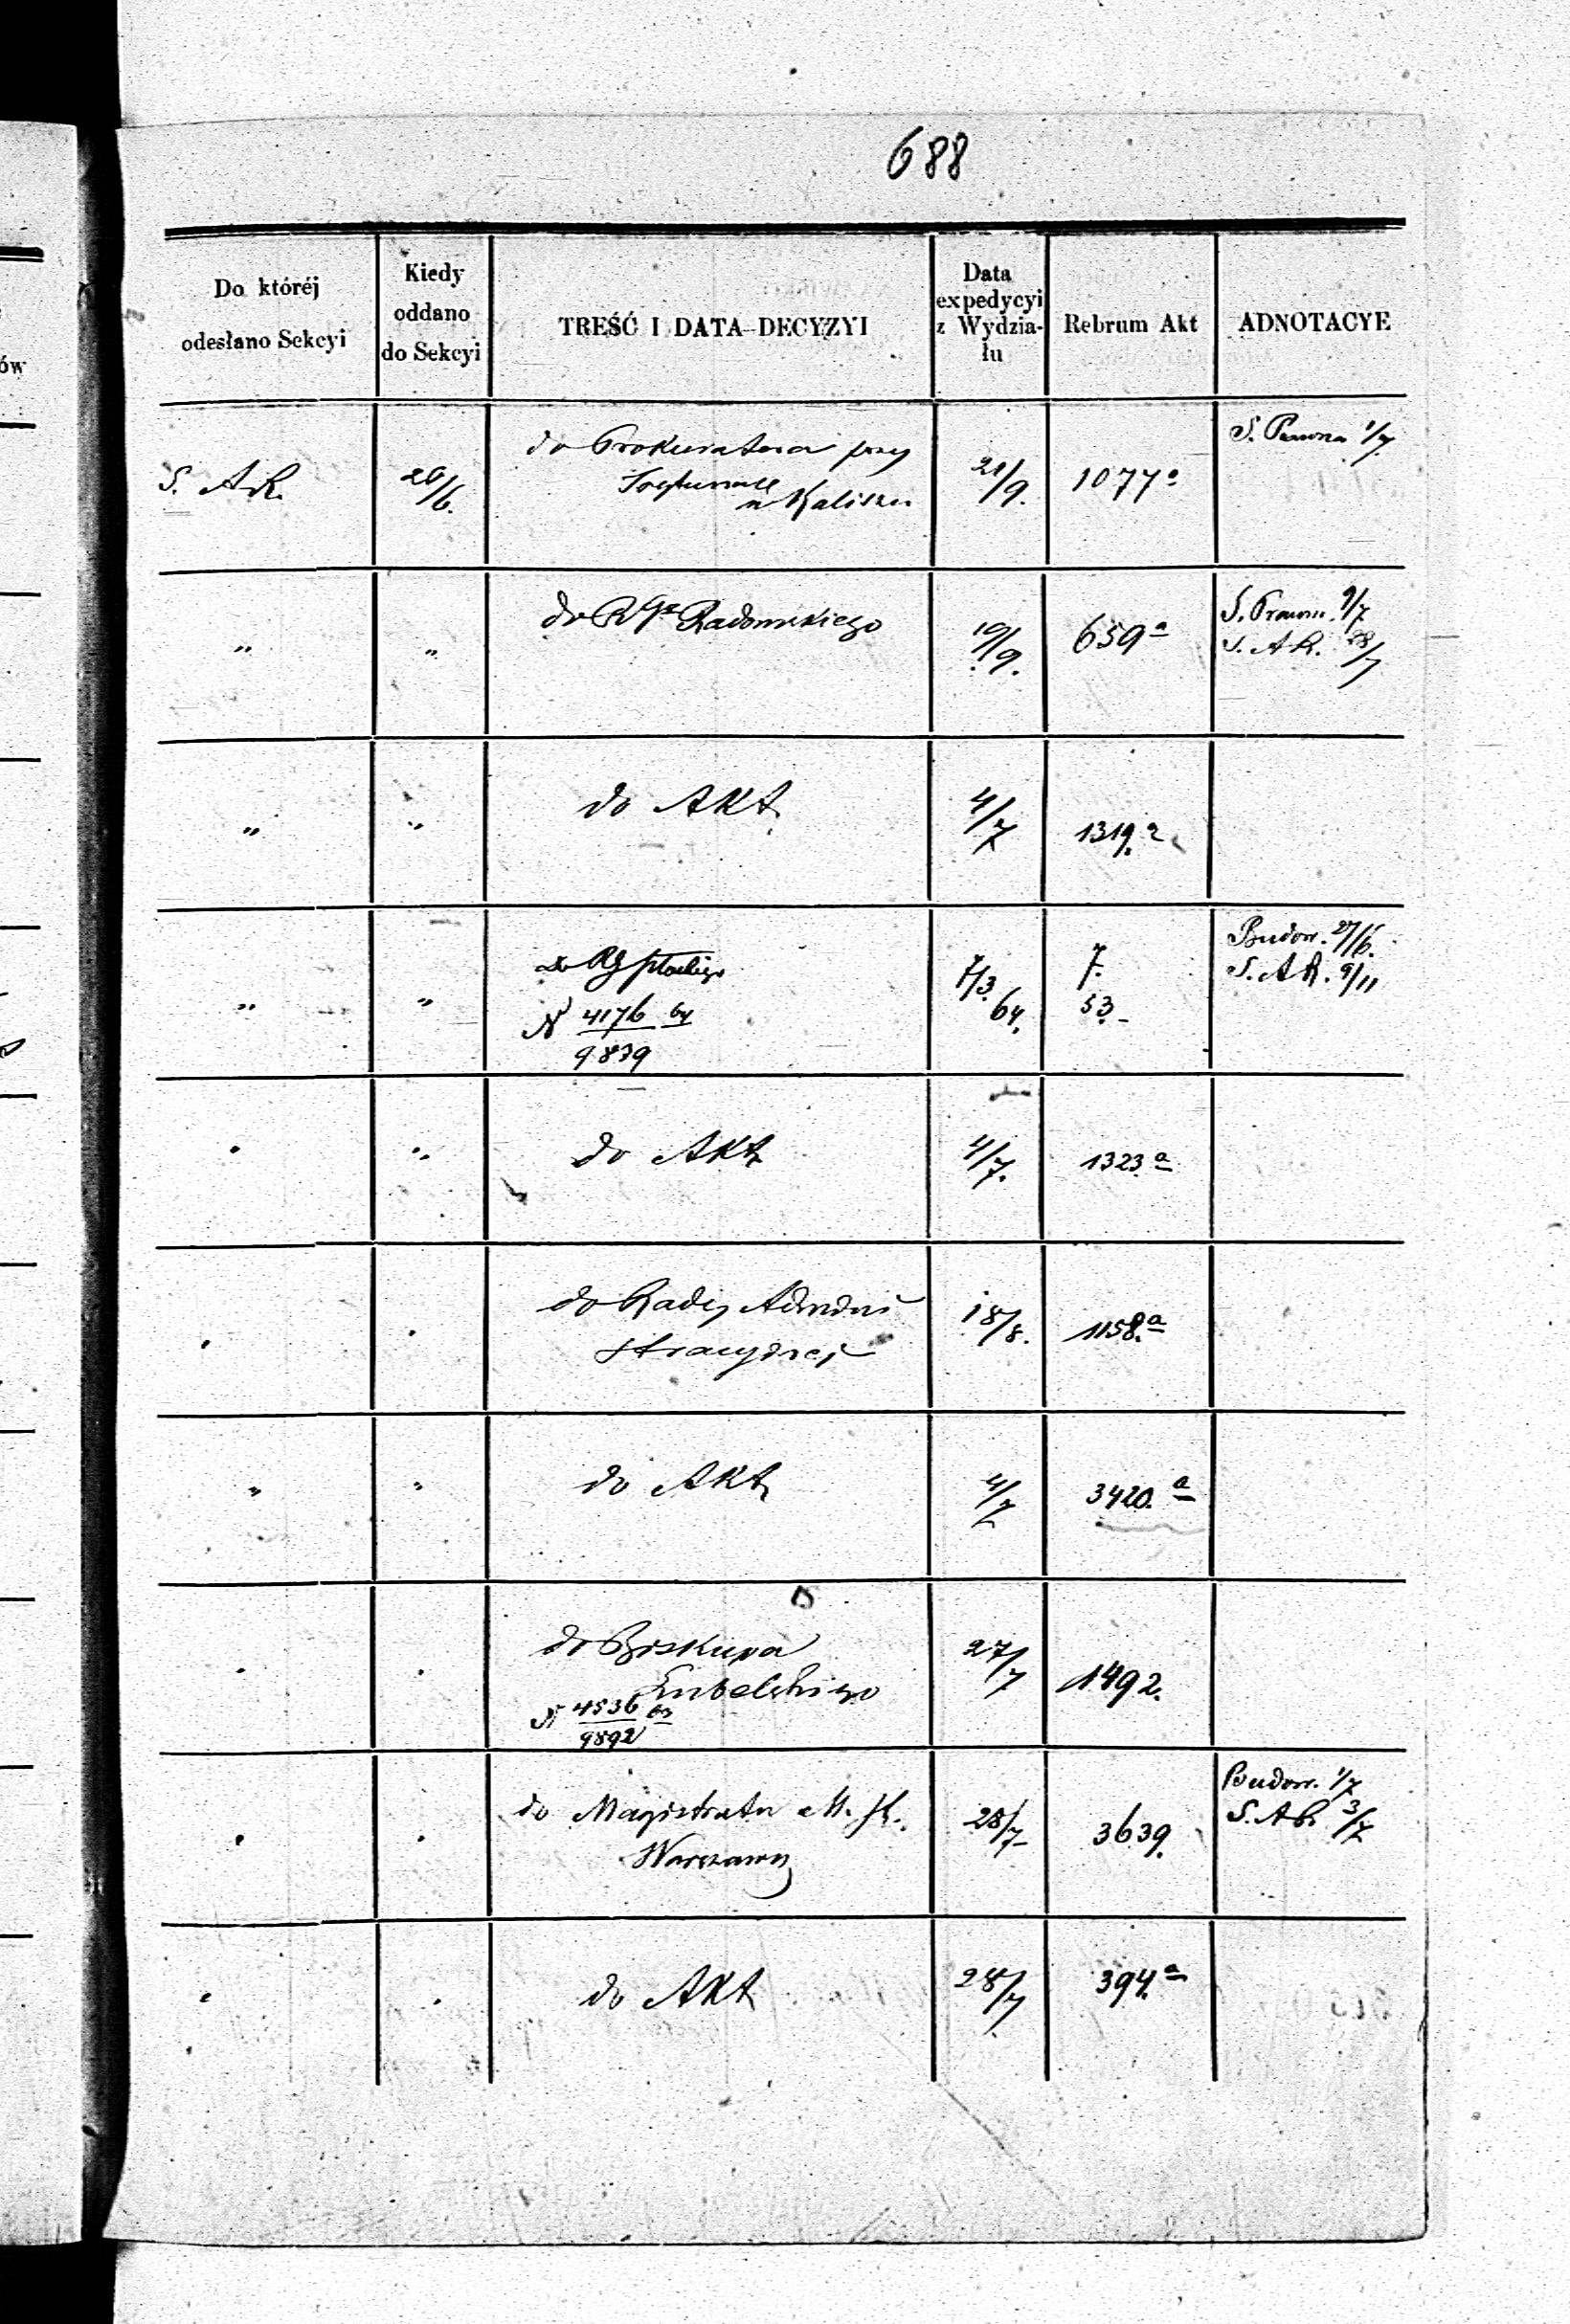 688
Do któréj
odesłano Sekcyi
Kiedy
oddano
do Sekcyi
TREŚĆ I DATA DECYZYI
Data
expedycyi
z Wydzia-
łu
Rebrum Akt
ADNOTACYE
S. AR.
26/6.
do Prokuratora przy
Trybunale
w Kaliszu
21/9.
1077 a
S. Prawna 1/7.
"
"
do RGo Radomskiego
19/9.
659 a
S. Prawn. 9/7
S. AR. 28/7
"
"
do Akt
4/7
1319. a
"
"
do RG płockiego
N 4176 64
9839
7/3 64.
7.
53
Budow. 27/6.
S. AR. 9/11
"
"
do Akt
4/7.
1323. a
"
"
do Rady Admini
stracyjnej
18/8.
1158. a
"
"
do Akt
4/7
3420. a
"
"
do Biskupa
Lubelskiego
N 4536 63
9892
27/7
1492.
"
"
do Magistratu M. St.
Warszawy
28/7
3639.
Budow. 1/7
S. AR 3/7
"
"
do Akt
28/7
394. a